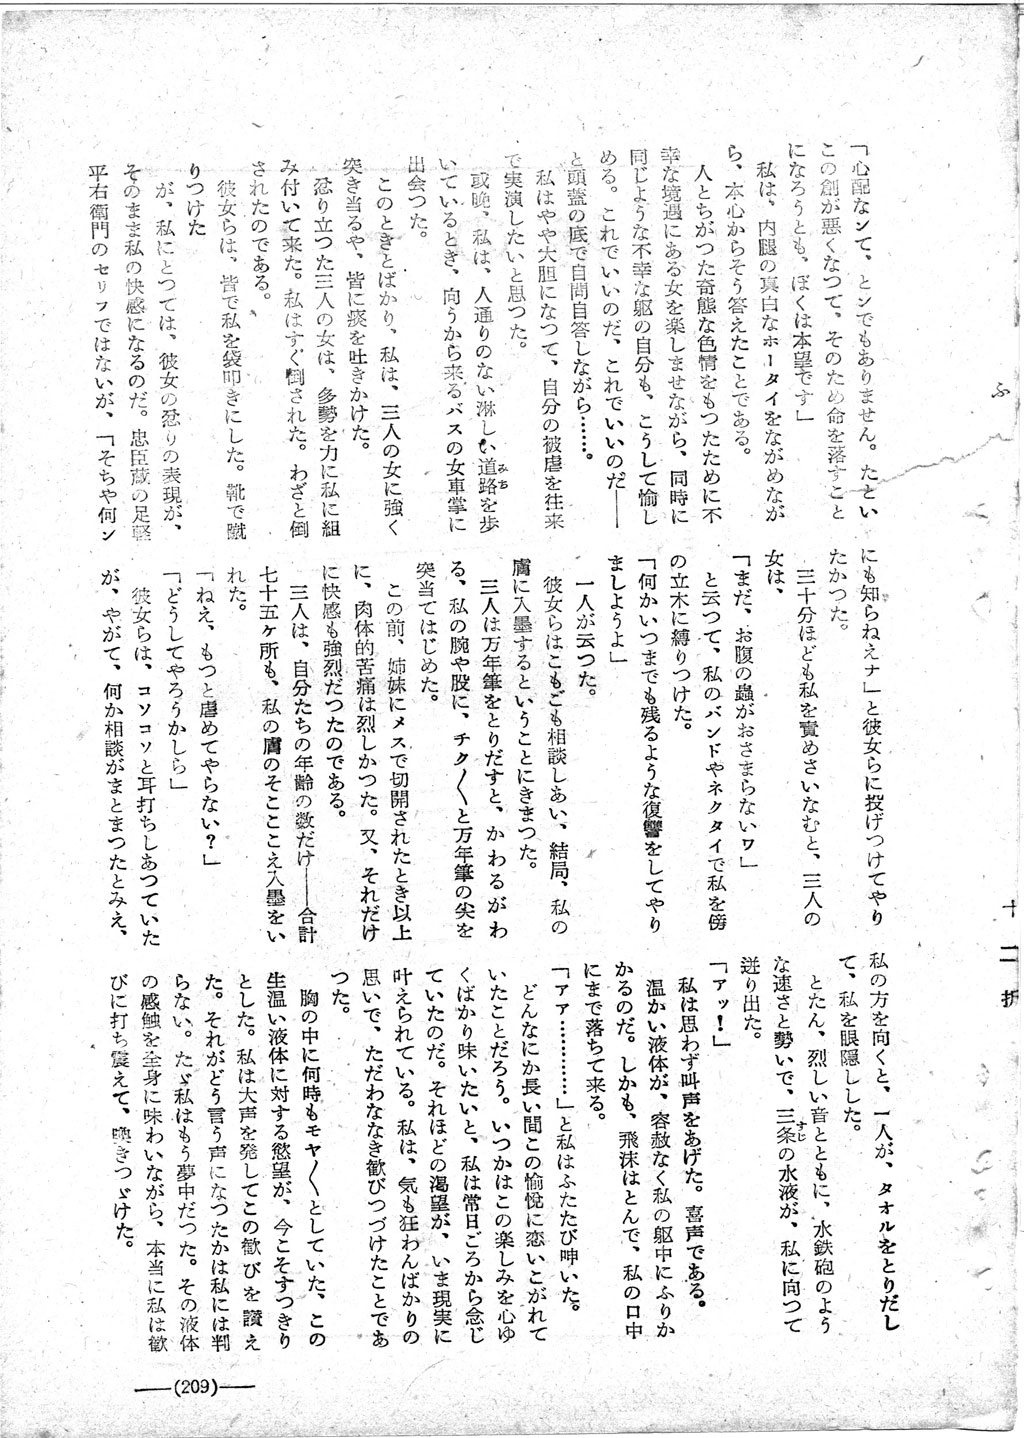 「心配なンて、とンでもありません。たとい
この創が悪くなつて、そのため命を落すこと
になろうとも、ぼくは本望です」
私は、内腿の真白なホータイをながめなが
ら、本心からそう答えたことである。
人とちがつた奇態な色情をもつたために不
幸な境遇にある女を楽しませながら、同時に
同じような不幸な躯の自分も、こうして愉し
める。これでいいのだ、これでいいのだ――
と頭蓋の底で自問自答しながら……。
私はやや大胆になつて、自分の被虐を往来
で実演したいと思つた。
或晩、私は、人通りのない淋しい道路を歩
みち
いているとき、向うから来るバスの女車掌に
出会つた。
このときとばかり、私は、三人の女に強く
突き当るや、皆に痰を吐きかけた。
忿り立つた三人の女は、多勢を力に私に組
み付いて来た。私はすぐ倒された。わざと倒
されたのである。
彼女らは、皆で私を袋叩きにした。靴で蹴
りつけた
が、私にとつては、彼女の忿りの表現が、
そのまま私の快感になるのだ。忠臣蔵の足軽
平右衛門のセリフではないが、「そちや何ン
にも知らねえナ」と彼女らに投げつけてやり
たかつた。
三十分ほども私を責めさいなむと、三人の
女は、
「まだ、お腹の蟲がおさまらないワ」
と云つて、私のバンドやネクタイで私を傍
の立木に縛りつけた。
「何かいつまでも残るような復讐をしてやり
ましようよ」
一人が云つた。
彼女らはこもごも相談しあい、結局、私の
膚に入墨するということにきまつた。
三人は万年筆をとりだすと、かわるがわ
る、私の腕や股に、チク〱と万年筆の尖を
突当てはじめた。
この前、姉妹にメスで切開されたとき以上
に、肉体的苦痛は烈しかつた。又、それだけ
に快感も強烈だつたのである。
三人は、自分たちの年齢の数だけ――合計
七十五ヶ所も、私の膚のそこここえ入墨をい
れた。
「ねえ、もつと虐めてやらない?」
「どうしてやろうかしら」
彼女らは、コソコソと耳打ちしあつていた
が、やがて、何か相談がまとまつたとみえ、
私の方を向くと、一人が、タオルをとりだし
て、私を眼隠しした。
とたん、烈しい音とともに、水鉄砲のよう
な速さと勢いで、三条の水液が、私に向つて
すじ
迸り出た。
「アッ!」
私は思わず叫声をあげた。喜声である。
温かい液体が、容赦なく私の躯中にふりか
かるのだ。しかも、飛沫はとんで、私の口中
にまで落ちて来る。
「アア…………」と私はふたたび呻いた。
どんなにか長い間この愉悦に恋いこがれて
いたことだろう。いつかはこの楽しみを心ゆ
くばかり味いたいと、私は常日ごろから念じ
ていたのだ。それほどの渇望が、いま現実に
叶えられている。私は、気も狂わんばかりの
思いで、ただわななき歓びつづけたことであ
つた。
胸の中に何時もモヤ〱としていた、この
生温い液体に対する慾望が、今こそすつきり
とした。私は大声を発してこの歓びを讃え
た。それがどう言う声になつたかは私には判
らない。たゞ私はもう夢中だつた。その液体
の感触を全身に味わいながら、本当に私は歓
びに打ち震えて、喚きつゞけた。
(209)